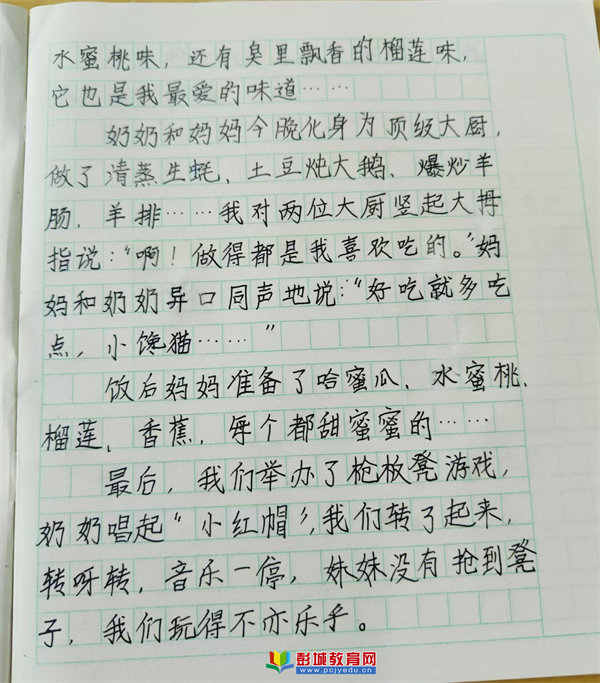 水蜜桃味，还有臭里飘香的榴莲味，
它也是我最爱的味道……
奶奶和妈妈今晚化身为顶级大厨，
做了清蒸生蚝、土豆炖大鹅、爆炒羊
肠、羊排……我对两位大厨竖起大拇
指说：“啊！做得都是我喜欢吃的。”妈
妈和奶奶异口同声地说：“好吃就多吃
点，小馋猫……”
饭后妈妈准备了哈蜜瓜、水蜜桃、
榴莲、香蕉，每个都甜蜜蜜的……
最后，我们举办了枪板凳游戏，
奶奶唱起“小红帽”，我们转了起来，
转呀转，音乐一停，妹妹没有抢到凳
子，我们玩得不亦乐乎。
彭城教育网
www.pcjyedu.cn